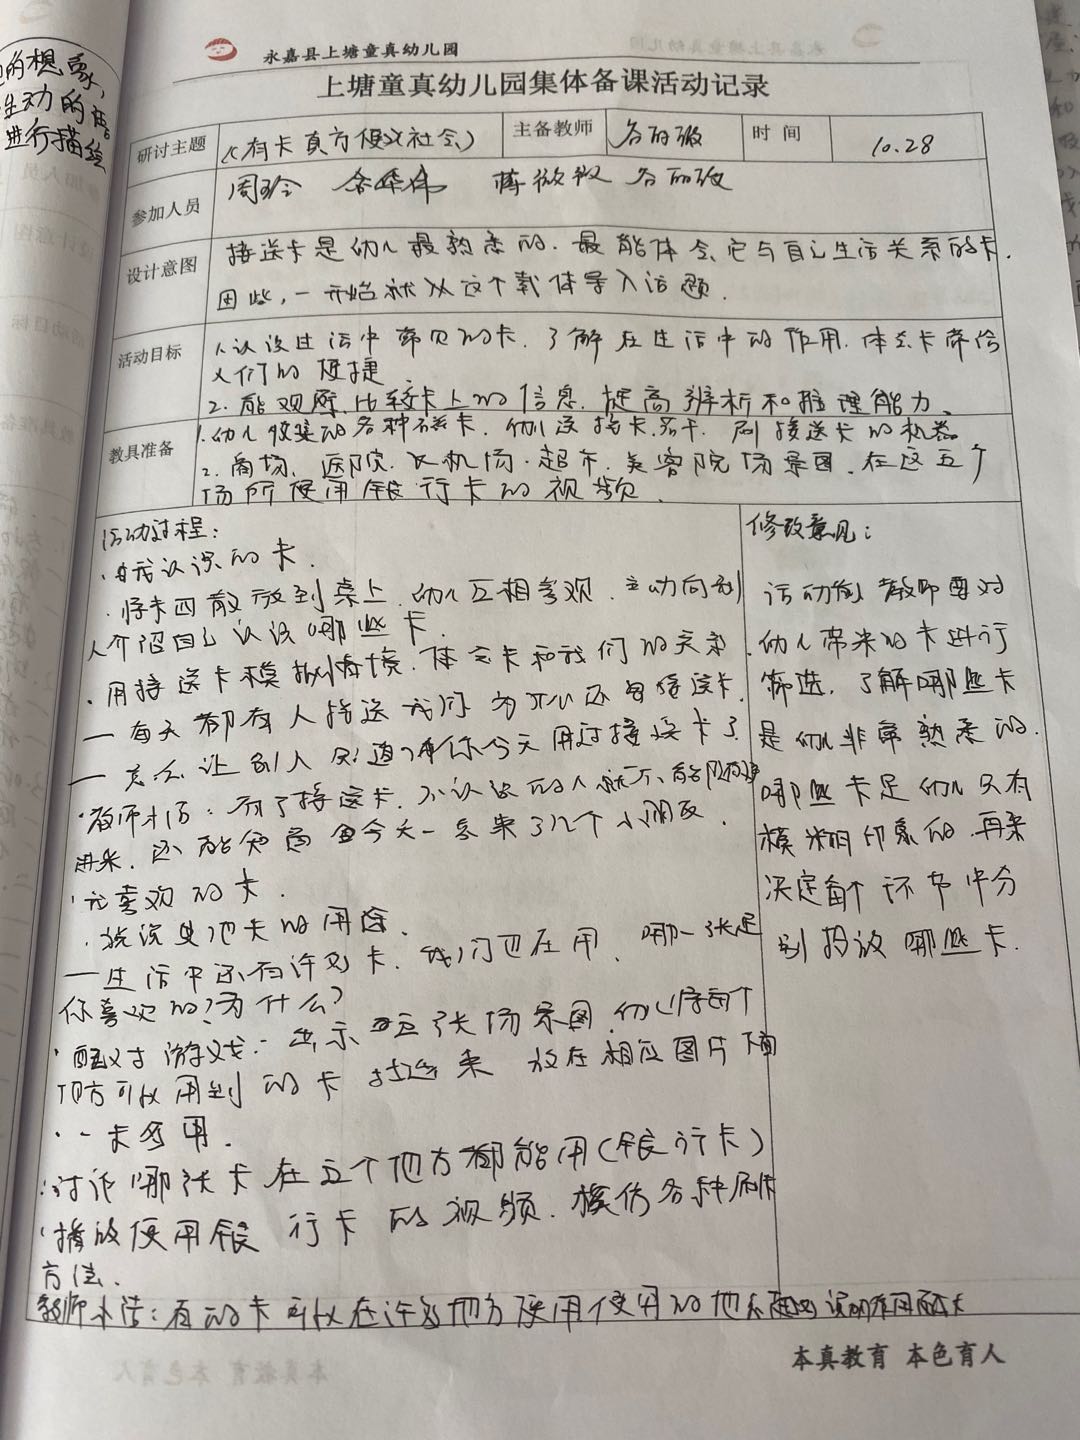 的想象,
生动的语
进行描绘
永嘉县上塘童真幼儿园
上塘童真幼儿园集体备课活动记录
研讨主题 《有卡真方便》(社会) 主备教师 时间 10.28
参加人员 周玲
设计意图 接送卡是幼儿最熟悉的.最能体会它与自己生活关系的卡.
因此,一开始就从这个载体导入话题.
活动目标 1.认识生活中常见的卡.了解在生活中的作用.体会卡带给
人们的便捷
2.能观察.比较卡上的信息.提高辨析和推理能力.
教具准备 1.幼儿收集的各种磁卡.幼儿接送卡.若干.刷接送卡的机器
2.商场、医院.飞机场.超市.美容院场景图.在这五个
场所使用银行卡的视频.
活动过程:
·我认识的卡.
·将卡四散放到桌上.幼儿互相参观.主动向别
人介绍自己认识哪些卡.
·用接送卡模拟情境.体会卡和我们的关系.
—每天都有人接送我们为什么还要接送卡.
—怎么让别人知道你今天用过接送卡了
·教师小结:有了接送卡.不认识的人就不能随便
进来.还能知道今天一共来了几个小朋友.
·我喜欢的卡.
·说说其他卡的用途.
—生活中还有许多卡.我们也在用.哪一张是
你喜欢的?为什么?
·配对游戏:出示五张场景图.幼儿将每个
地方可以用到的卡找出来放在相应图片下面
·一卡多用.
·讨论哪张卡在五个地方都能用(银行卡)
·播放使用银行卡的视频.模仿各种刷卡
方法.
教师小结:有的卡可以在许多地方使用使用的地方越多说明作用越大
修改意见:
活动前教师要对
幼儿带来的卡进行
筛选.了解哪些卡
是幼儿非常熟悉的.
哪些卡是幼儿只有
模糊印象的.再来
决定每个环节中分
别投放哪些卡.
本真教育 本色育人